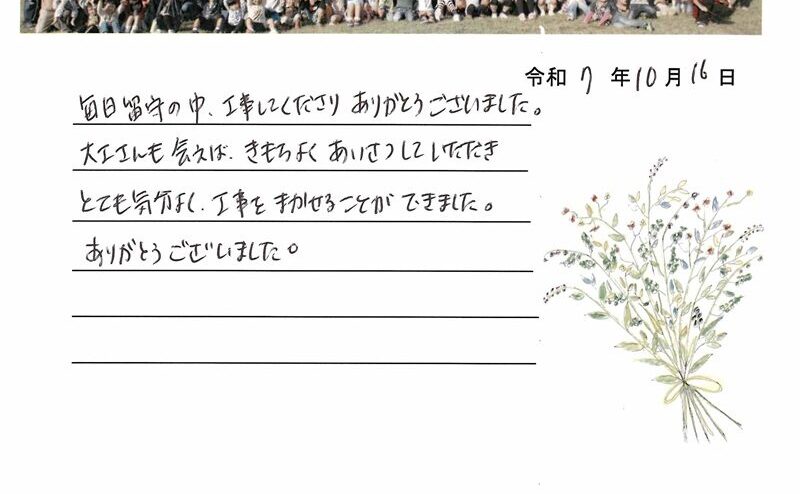 令和 7 年 10 月 16 日
毎日留守の中、工事してくださり ありがとうございました。
大工さんも 会えば、きもちよく あいさつして いただき
とても気分よく、工事を まかせることが できました。
ありがとうございました。